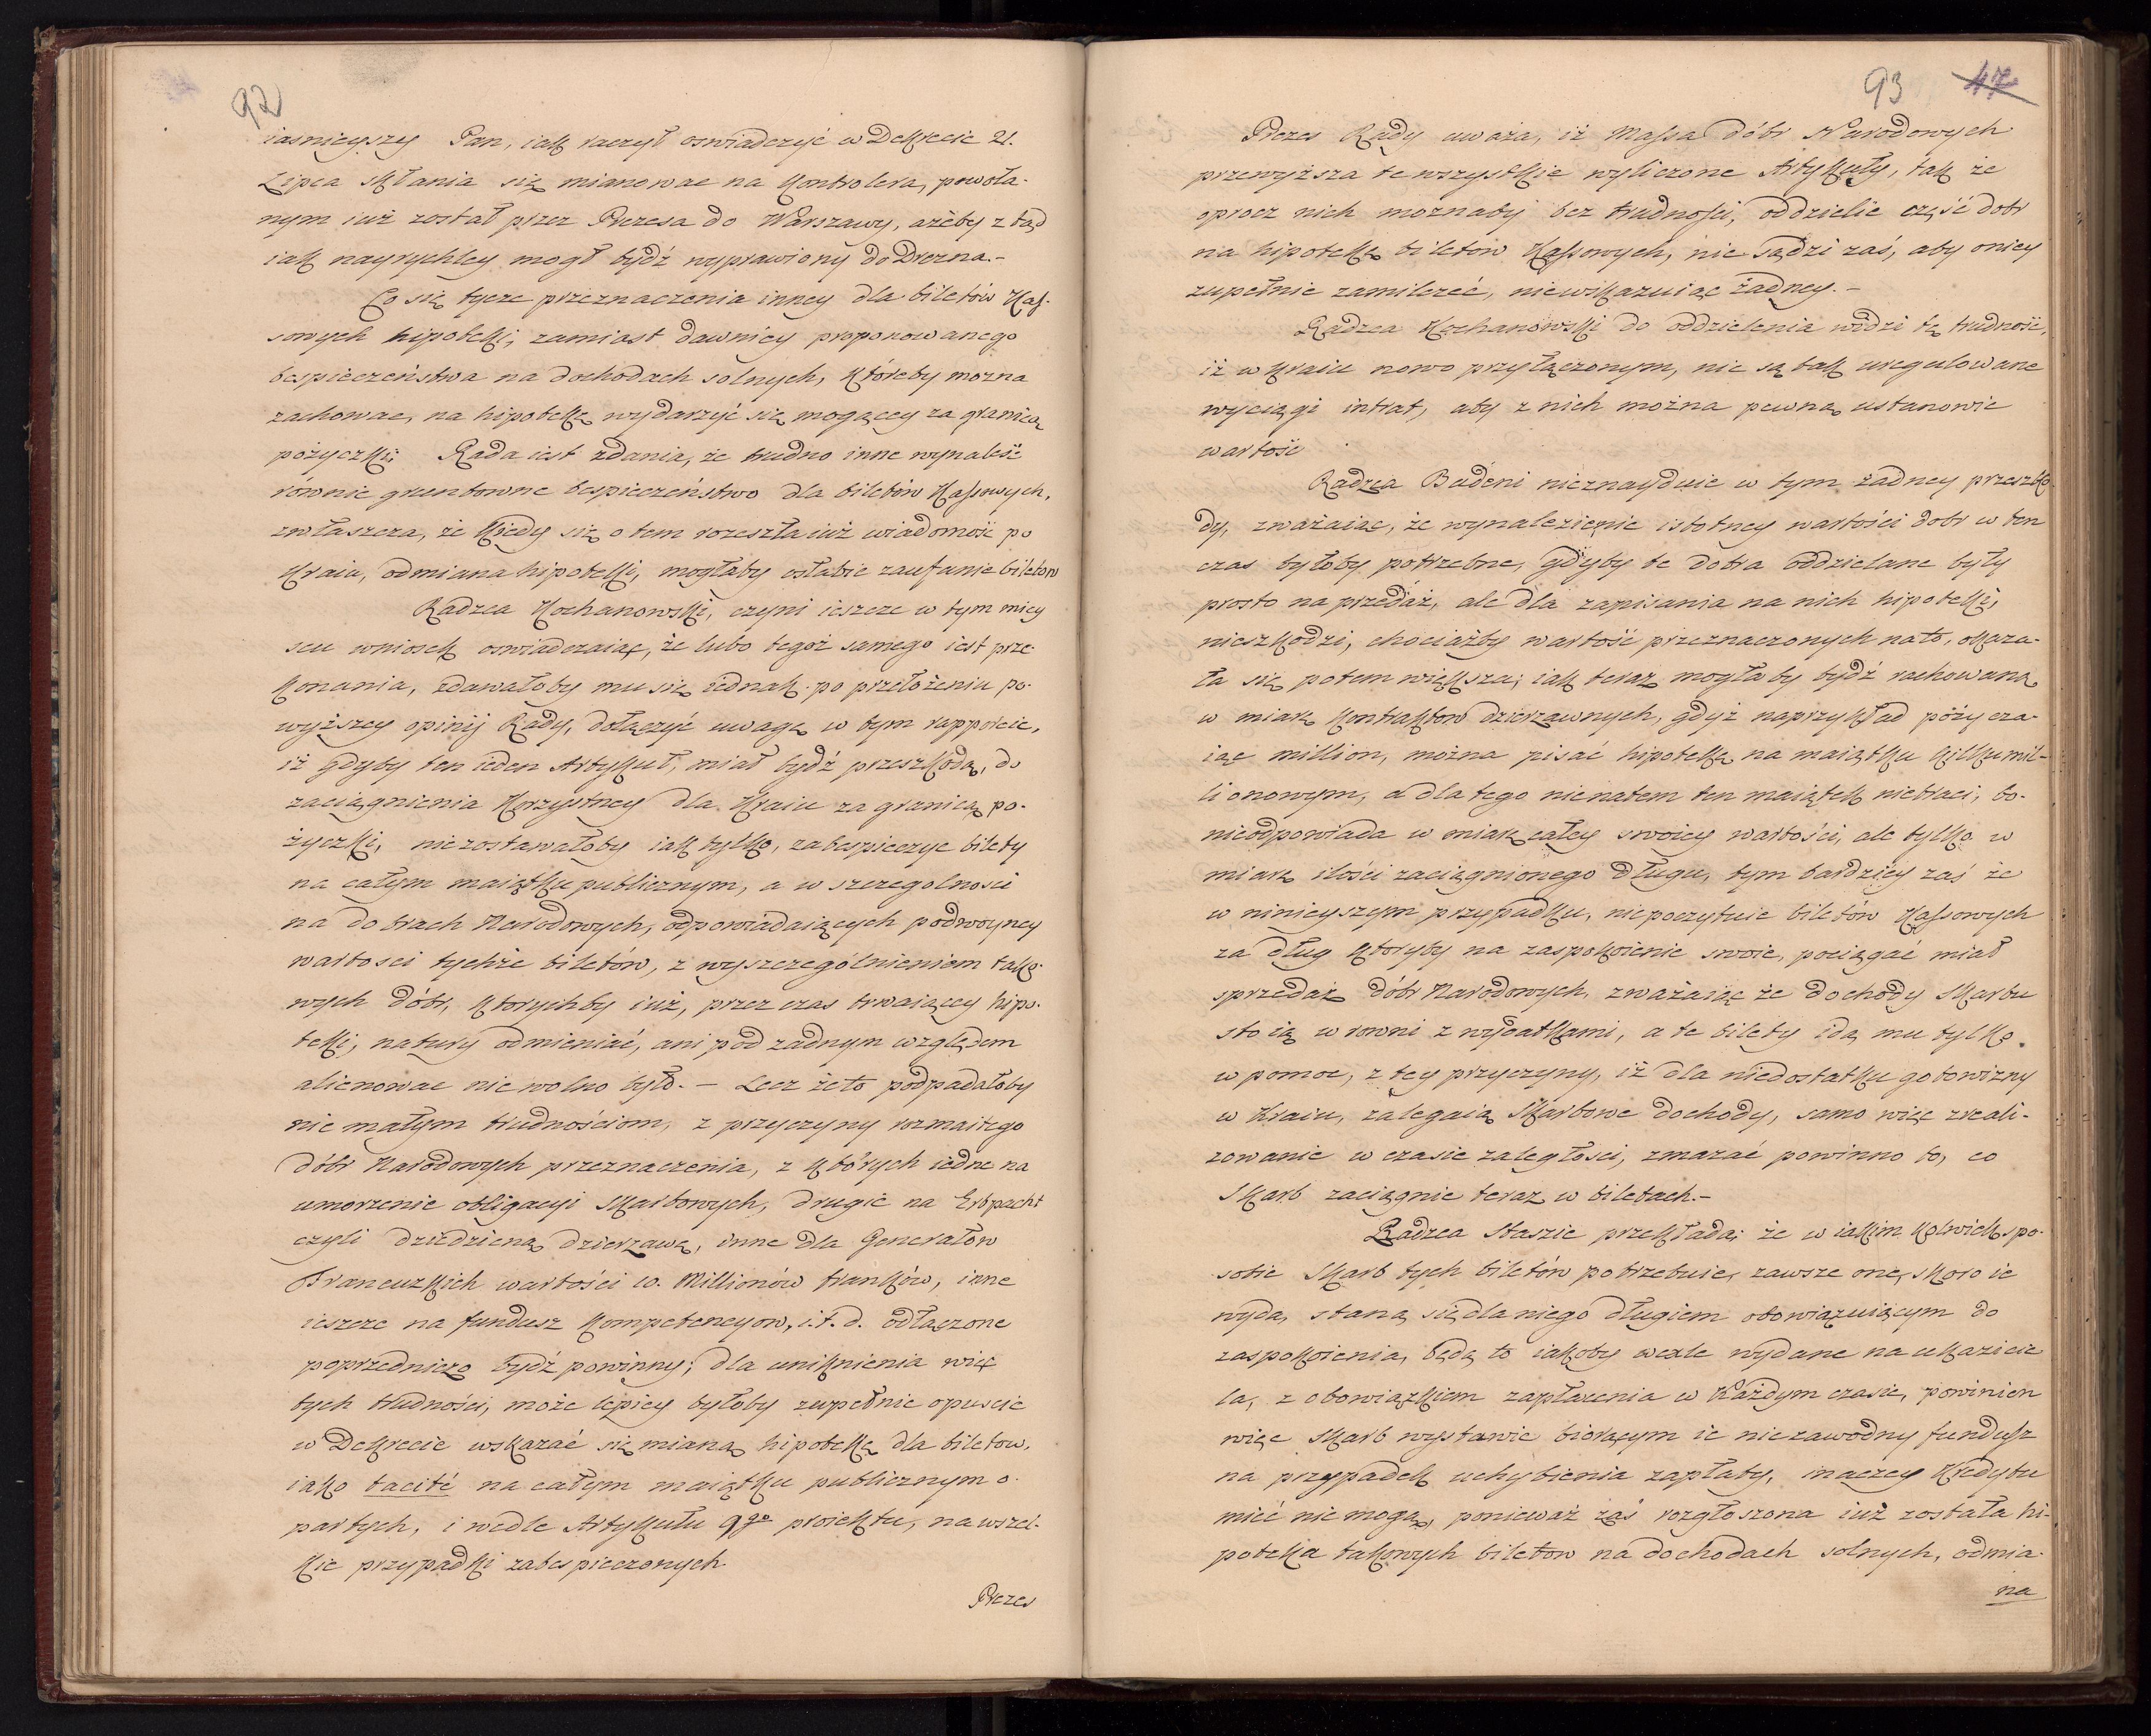 92
iasnieyszy Pan, iak raczył oswiadczyć w Dekrecie 21.
Lipca skłania się mianowac na Kontrolera, powoła-
nym iuż został przez Prezesa do Warszawy, ażeby z tąd
iak nayrychley mogł bydź wyprawiony do Drezna.-
Co się tycze przeznaczenia inney dla biletów Kas-
sowych hipoteki; zamiast dawniey proponowanego
bespieczeństwa na dochodach solnych, któreby można
zachowac, na hipotekę wydarzyć się mogącey za granicą
pożyczki; Rada iest zdania, że trudno inne wynaleść
rownie gruntowne bespieczeństwo dla biletów Kassowych,
zwłaszcza, że kiedy się o tem rozeszła iuż wiadomość po
Kraiu, odmiana hipoteki, mogłaby osłabic zaufanie biletow
Radzca Kochanowski, czyni ieszcze w tym miey
scu wniosek oswiadczaiąc, że lubo tegoż samego iest prze-
konania, zdawałoby mu się iednak po przełożeniu po-
wyższey opinij Rady, dołączyć uwagę w tym rapporcie,
iż gdyby ten ieden Artykuł, miał bydź przeszkodą, do
zaciągnienia korzystney dla Kraiu za granicą po-
życzki, niezostawałoby iak tylko, zabespieczyc bilety
na całym maiątku publicznym, a w szczegolnosci
na dobrach Narodowych, odpowiadaiących podwoyney
wartosci tychże biletów, z wyszczególnieniem tako-
wych dóbr, ktorychby iuż, przez czas trwaiącey hipo-
teki, natury odmieniać, ani pod żadnym względem
alienowac nie wolno było. - Lecz żeto podpadałoby
nie małym trudnościom, z przyczyny rozmaitego
dóbr Narodowych przeznaczenia, z których iedne na
umorzenie obligacyi Skarbowych, drugie na Erbpacht
czyli dziedziczną dzierzawę, inne dla Generałow
Francuzkich wartości 10. Millionów franków, inne
ieszcze na fundusz Kompetencyow, i.t.d. odłączone
poprzedniczo bydź powinny; dla uniknienia więc
tych trudności, może lepiey byłoby zupełnie opuscic
w Dekrecie wskazać się mianą hipotekę dla biletow,
iako tacité na całym maiątku publicznym o-
partych, i wedle Artykułu 9go proiektu, na wszel-
kie przypadki zabespieczonych.
Prezes
93 47
Prezes Rady uważa, iż Massa dóbr Narodowych
przewyższa te wszystkie wyliczone Artykuły, tak że
oprocz nich moznaby bez trudności, oddzielic część dobr
na hipotekę biletow Kassowych, nie sądzi zaś, aby oniey
zupełnie zamilczeć, niewskazuiąc żadney.-
Radzca Kochanowski do oddzielenia widzi tę trudność,
iż w Kraiu nowo przyłączonym, nie są tak uregulowane
wyciągi intrat, aby z nich można pewną ustanowic
wartość
Radzca Badeni nieznayduie w tym żadney przeszko-
dy, zważaiąc, że wynalezienie istotney wartości dobr w ten
czas byłoby potrzebne, gdyby te dobra oddzielane były
prosto na przedaż, ale dla zapisania na nich hipoteki,
nieszkodzi, chociażby wartość przeznaczonych na to, okaza-
ła się potem większa, iak teraz mogłaby bydź rachowaną
w miarę Kontraktow dzierzawnych, gdyż naprzykład pożycza-
iąc million, można pisać hipotekę na maiątku kilkumil-
lionowym, a dla tego nie na tem ten maiątek nietraci, bo-
nieodpowiada w miarę całey swoiey wartości, ale tylko w
miarę ilości zaciągnionego długu, tym bardziey zaś że
w ninieyszym przypadku, niepoczytuie biletów Kassowych
za dług ktoryby na zaspokoienie swoie, pociągać miał
sprzedaż dóbr Narodowych, zważaiąc że dochody Skarbu
stoią w rowni z wydatkami, a te bilety idą mu tylko
w pomoc, z tey przyczyny, iż dla niedostatku gotowizny
w Kraiu, zalegaią Skarbowe dochody, samo więc zreali-
zowanie w czasie zaległości, zmazać powinno to, co
Skarb zaciągnie teraz w biletach.-
Radzca Staszic przekłada; że w iakim kolwiek spo-
sobie Skarb tych biletów potrzebuie, zawsze one, skoro ie
wyda, staną się dla niego długiem obowiązuiącym do
zaspokoienia, będą to iakoby wexle wydane na ukaziecie
la, z obowiązkiem zapłacenia w każdym czasie, powinien
więc Skarb wystawic biorącym ie niezawodny fundusz
na przypadek uchybienia zapłaty, inaczey kredytu
mieć nie mogą, ponieważ zaś rozgłoszona iuż została hi-
poteka takowych biletow na dochodach solnych, odmia-
na